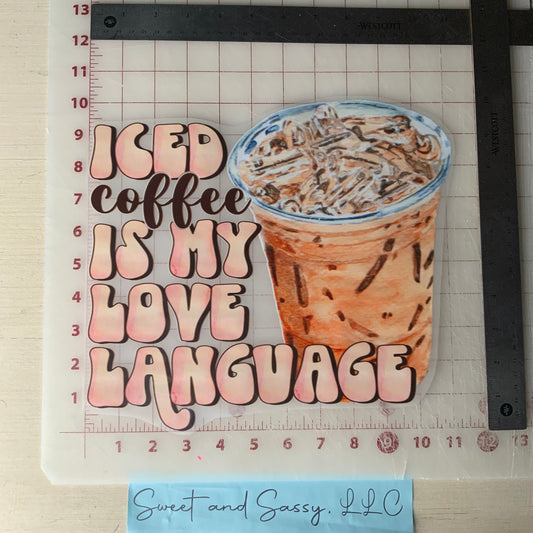 13
12
11
10
9
8
7
6
5
4
3
2
1
WESTCOTT
WESTCOTT
ICED
coffee
IS MY
LOVE
LANGUAGE
1 2 3 4 5 6 7 8 9 10 11 12 13
Sweet and Sassy, LLC